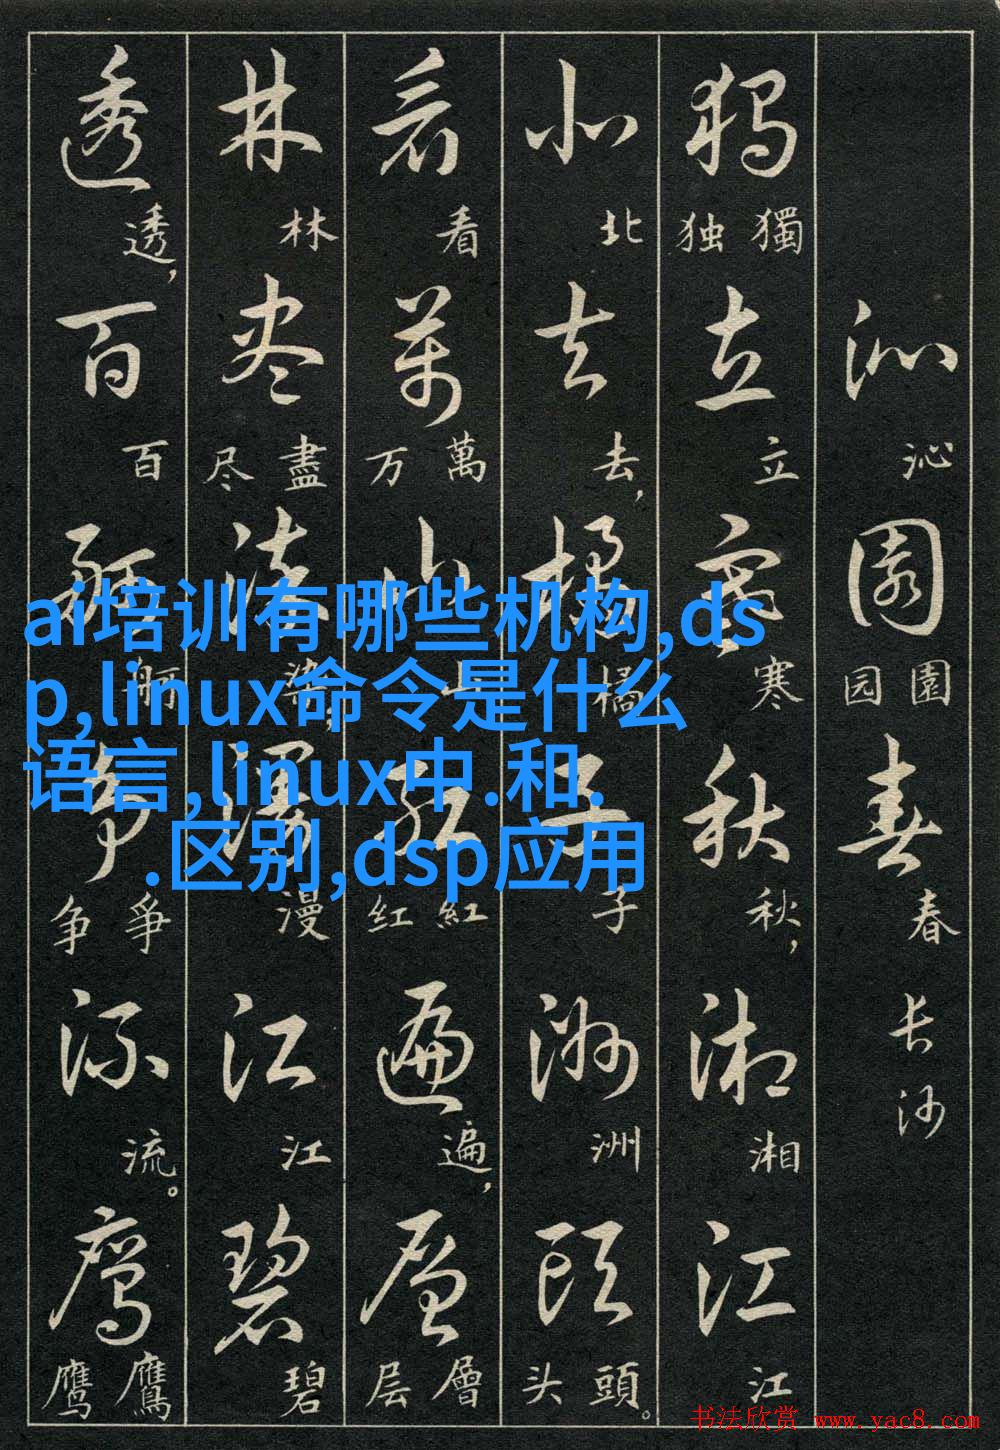 ai培训有哪些机构,ds
p,linux命令是什么
语言,linux中.和.
.区别,dsp应用
沁沁園園园春春长沙
獨獨独立立寒寒秋秋,湘湘江江
北北去去,橘橘子子洲洲頭頭。头
看看萬萬万山山紅紅红遍遍,層層层
林林盡盡尽染染,漫漫江江碧碧
透透,百百舸舸爭爭争流流。鷹鷹鹰
书法欣赏 www.yac8.com